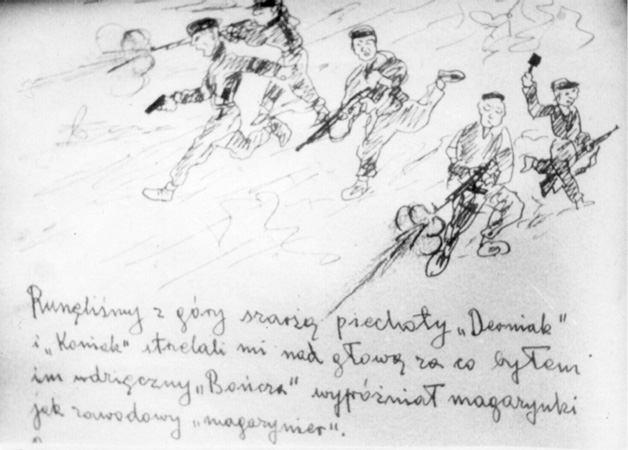 Runęliśmy z góry szarżą piechoty „Deoniak"
i „Koniek" strzelali mi nad głową za co byłem
im wdzięczny „Bończa" wypróżniał magazynki
jak zawodowy „magazynier".